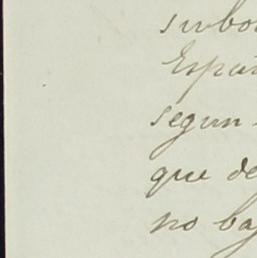 subor
Españ
segun
que de
no baj